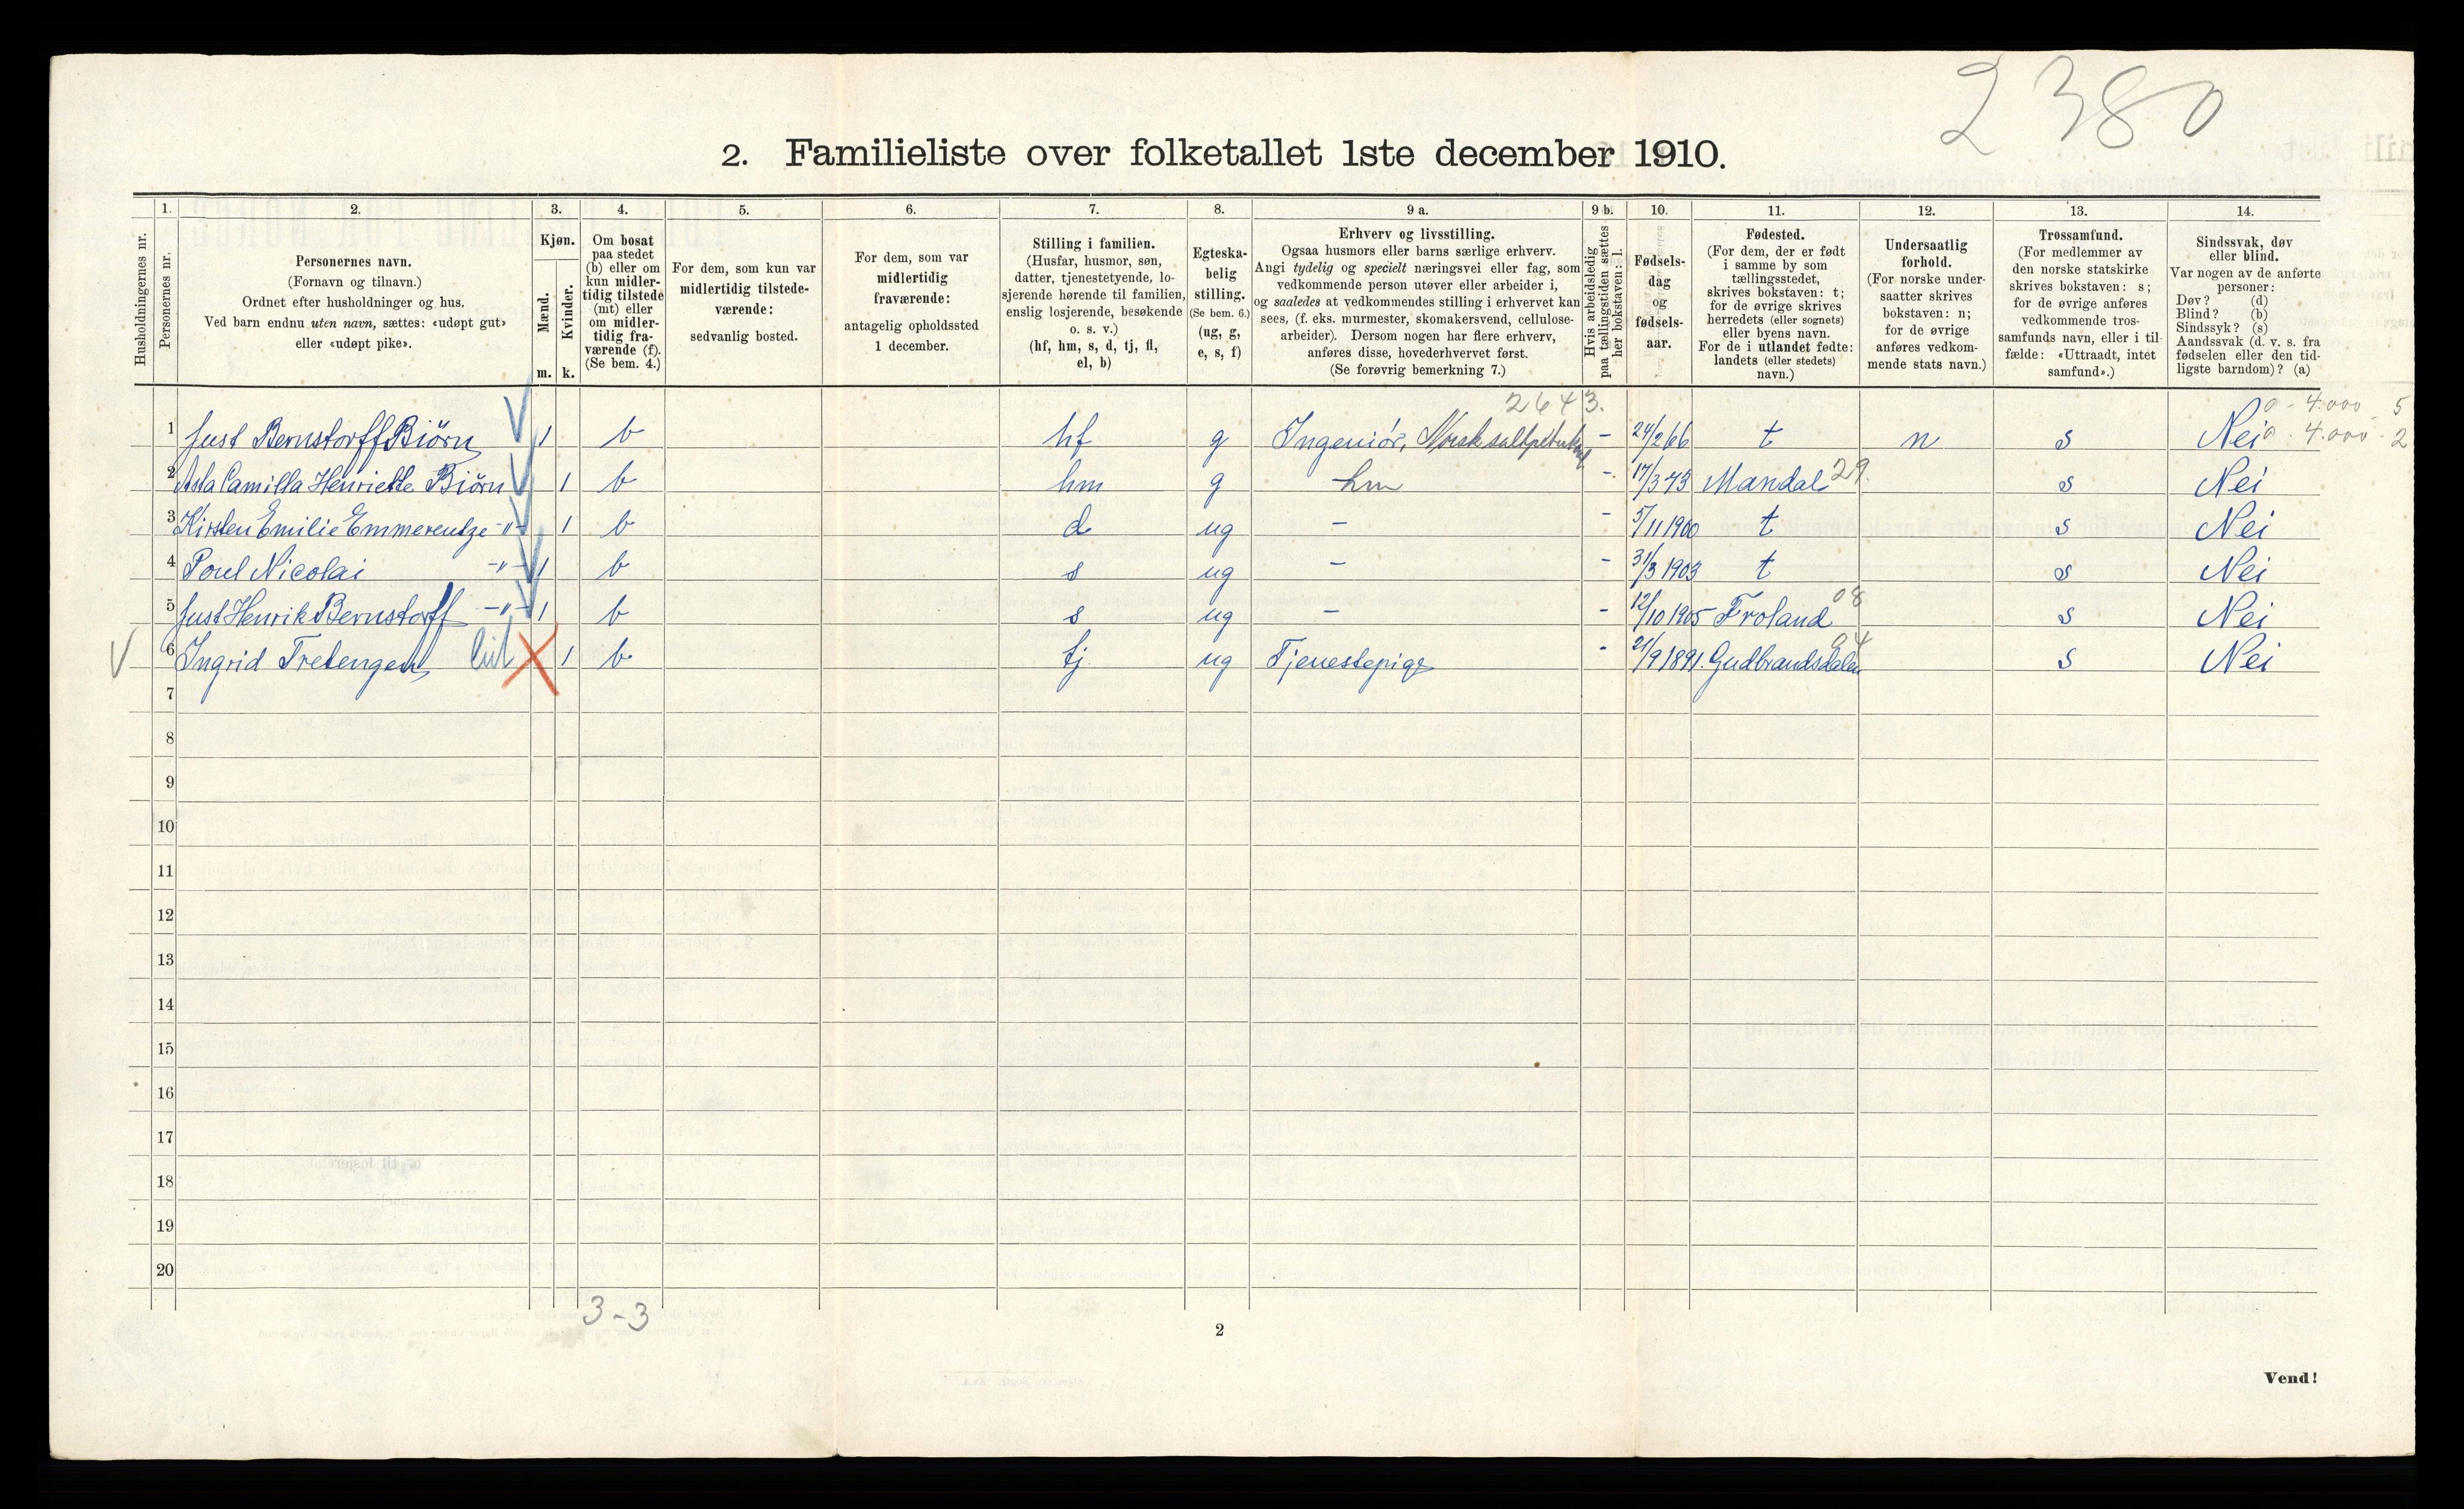 2380
2. Familieliste over folketallet 1ste december 1910.
Husholdningernes nr.
1. Personernes nr.
2. Personernes navn.
(Fornavn og tilnavn.)
Ordnet efter husholdninger og hus.
Ved barn endnu uten navn, sættes: «udøpt gut»
eller «udøpt pike».
3. Kjøn.
Mænd. m.
Kvinder. k.
4. Om bosat
paa stedet
(b) eller om
kun midler-
tidig tilstede
(mt) eller
om midler-
tidig fra-
værende (f).
(Se bem. 4.)
5. For dem, som kun var
midlertidig tilstede-
værende:
sedvanlig bosted.
6. For dem, som var
midlertidig
fraværende:
antagelig opholdssted
1 december.
7. Stilling i familien.
(Husfar, husmor, søn,
datter, tjenestetyende, lo-
sjerende hørende til familien,
enslig losjerende, besøkende
o. s. v.)
(hf, hm, s, d, tj, fl,
el, b)
8. Egteska-
belig
stilling.
(Se bem. 6.)
(ug, g,
e, s, f)
9 a. Erhverv og livsstilling.
Ogsaa husmors eller barns særlige erhverv.
Angi tydelig og specielt næringsvei eller fag, som
vedkommende person utøver eller arbeider i,
og saaledes at vedkommendes stilling i erhvervet kan
sees, (f. eks. murmester, skomakersvend, cellulose-
arbeider). Dersom nogen har flere erhverv,
anføres disse, hovederhvervet først.
(Se forøvrig bemerkning 7.)
9 b. Hvis arbeidsledig
paa tællingstiden sættes
her bokstaven: l.
10. Fødsels-
dag
og
fødsels-
aar.
11. Fødested.
(For dem, der er født
i samme by som
tællingsstedet,
skrives bokstaven: t;
for de øvrige skrives
herredets (eller sognets)
eller byens navn.
For de i utlandet fødte:
landets (eller stedets)
navn.)
12. Undersaatlig
forhold.
(For norske under-
saatter skrives
bokstaven: n;
for de øvrige
anføres vedkom-
mende stats navn.)
13. Trossamfund.
(For medlemmer av
den norske statskirke
skrives bokstaven: s;
for de øvrige anføres
vedkommende tros-
samfunds navn, eller i til-
fælde: «Uttraadt, intet
samfund».)
14. Sindssvak, døv
eller blind.
Var nogen av de anførte
personer:
Døv? (d)
Blind? (b)
Sindssyk? (s)
Aandssvak (d. v. s. fra
fødselen eller den tid-
ligste barndom)? (a)
2643. 4.000 5
1 Just Bernstorff Biörn 1 b hf g Ingeniör, Norsk – 24/2 66 t n s Nei 4.000 - 2
2 Asta Camilla Henriette Biörn 1 b hm g hm - 17/3 73 Mandal 29. s Nei
3 Kirsten Emilie Emmerentze -"- 1 b d ug – - 5/11 1900 t s Nei
4 Poul Nicolai -"- 1 b s ug – - 31/3 1903 t s Nei
5 Just Henrik Bernstorff -"- 1 b s ug – - 12/10 1905 Froland 08 s Nei
6 Ingrid Tretengen 1 b tj ug Tjenestepige - 21/9 1891. Gudbrandsdalen 04 s Nei
7
8
9
10
11
12
13
14
15
16
17
18
19
20
3-3
2
Vend!